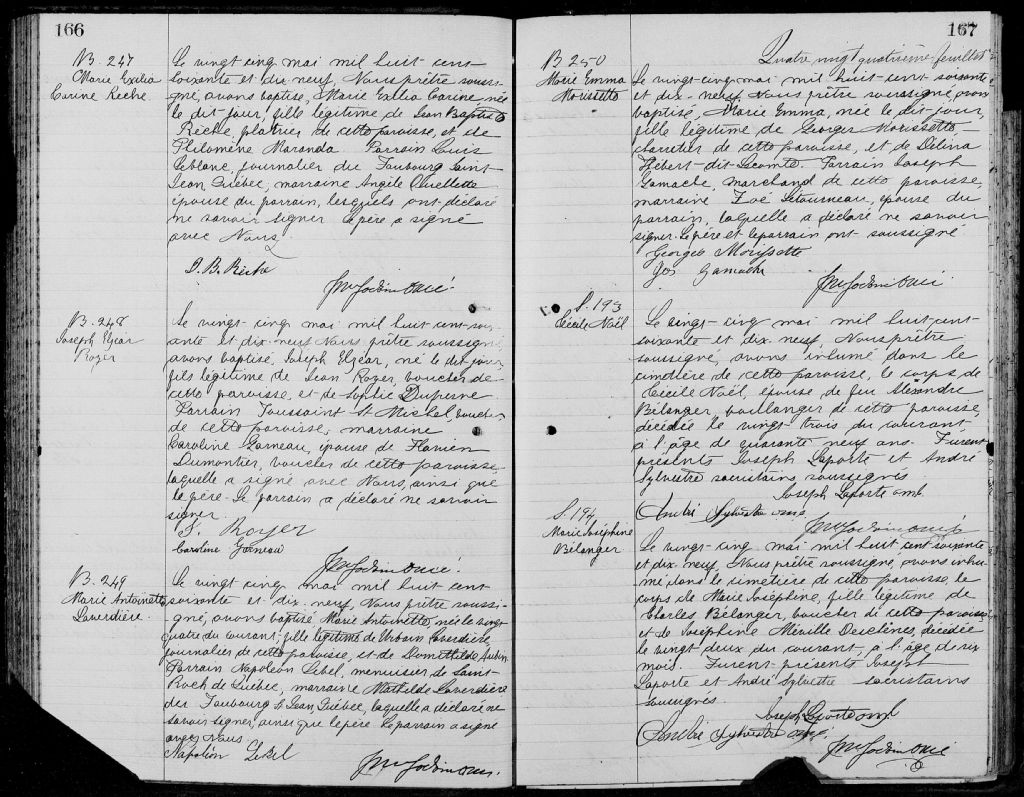 166
B. 247
Marie Exilia
Carine Riche
Le vingt cinq mai mil huit cent
soixante et dix neuf, Nous prêtre soussi-
gné, avons baptisé, Marie Exilia Carine, née
le dit jour, fille légitime de Jean Baptiste
Riche, platrier de cette paroisse, et de
Philomène Maranda Parrain Louis
Leblanc, journalier du Faubourg Saint-
Jean Québec, marraine Angèle Ouellette
épouse du parrain, lesquels ont déclaré
ne savoir signer le père a signé
avec Nous.
J. B. Riche
B. 248
Joseph Elzéar
Royer
Le vingt-cinq mai mil huit cent-soi-
xante et dix-neuf Nous prêtre soussigné
avons baptisé, Joseph Elzéar, né le dit jour
fils légitime de Jean Royer, boucher de
cette paroisse, et de Sophie
Parrain Toussaint St Michel, boucher
de cette paroisse, marraine
Caroline Garneau, épouse de Flavien
Dumontier, boucher de cette paroisse,
laquelle a signé avec Nous, ainsi que
le père. Le parrain a déclaré ne savoir
signer.
J. Royer
Caroline Garneau
B. 249
Marie Antoinette
Laverdière.
Le vingt cinq mai mil huit cent
soixante et dix-neuf, Nous prêtre soussi-
gné, avons baptisé Marie Antoinette, née le vingt
quatre du courant, fille légitime de Urbain Laverdière
journalier de cette paroisse, et de Domethilde Aubin
Parrain Napoléon Lebel, menuisier de Saint-
Roch de Québec, marraine Mathilde Laverdière
du Faubourg St Jean, Québec, laquelle a déclaré ne
savoir signer, ainsi que le père Le parrain a signé
avec Nous.
Napoléon Lebel
167
Quatre vingt quatrième feuillet
B 250
Marie Emma
Morissette
Le vingt-cinq mai mil huit-cent-soixante
et dix-neuf, Nous prêtre soussigné, avons
baptisé, Marie Emma, née le dit jour,
fille légitime de Georges Morissette,
charretier de cette paroisse, et de Délina
Hébert-dit-Lecomte. Parrain Joseph
Gamache, marchand de cette paroisse,
marraine Zoé Létourneau, épouse du
parrain, laquelle a déclaré ne savoir
signer. Le père et le parrain ont soussigné
Georges Morissette
Jos Gamache
S. 193
Cécile Noël
Le vingt-cinq mai mil huit-cent-
soixante et dix-neuf, Nous prêtre
soussigné, avons inhumé dans le
cimetière de cette paroisse, le corps de
Cécile Noël, épouse de feu Alexandre
Bélanger, boulanger de cette paroisse,
décédée le vingt-trois du courant
à l'âge de quarante neuf ans. Furent
présents Joseph Laporte et André
Sylvestre sacristains, soussignés
Joseph Laporte
André Sylvestre
S. 194
Marie Joséphine
Bélanger
Le vingt-cinq mai mil huit cent soixante
et dix-neuf, Nous prêtre soussigné, avons inhu-
mé, dans le cimetière de cette paroisse, le
corps de Marie Joséphine, fille légitime de
Charles Bélanger, boucher de cette paroisse
et de Joséphine décédée
le vingt deux du courant, à l'âge de six
mois. Furent présents Joseph
Laporte et André Sylvestre sacristains
soussignés.
Joseph Laporte
André Sylvestre